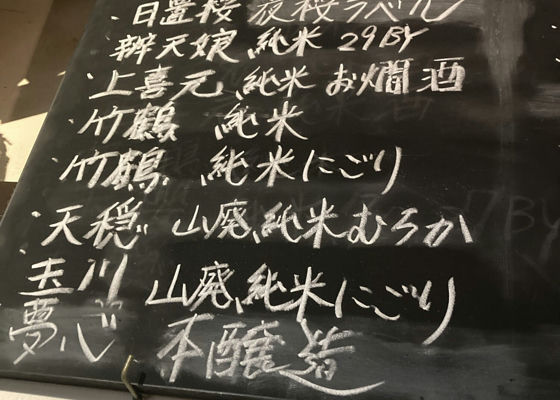 ・日置桜 夜桜ラベル
・辨天娘 純米 29BY
・上喜元 純米 お燗酒
・竹鶴 純米
・竹鶴 純米にごり
・天穏 山廃純米むろか
玉川 山廃純米にごり
夢心 本醸造